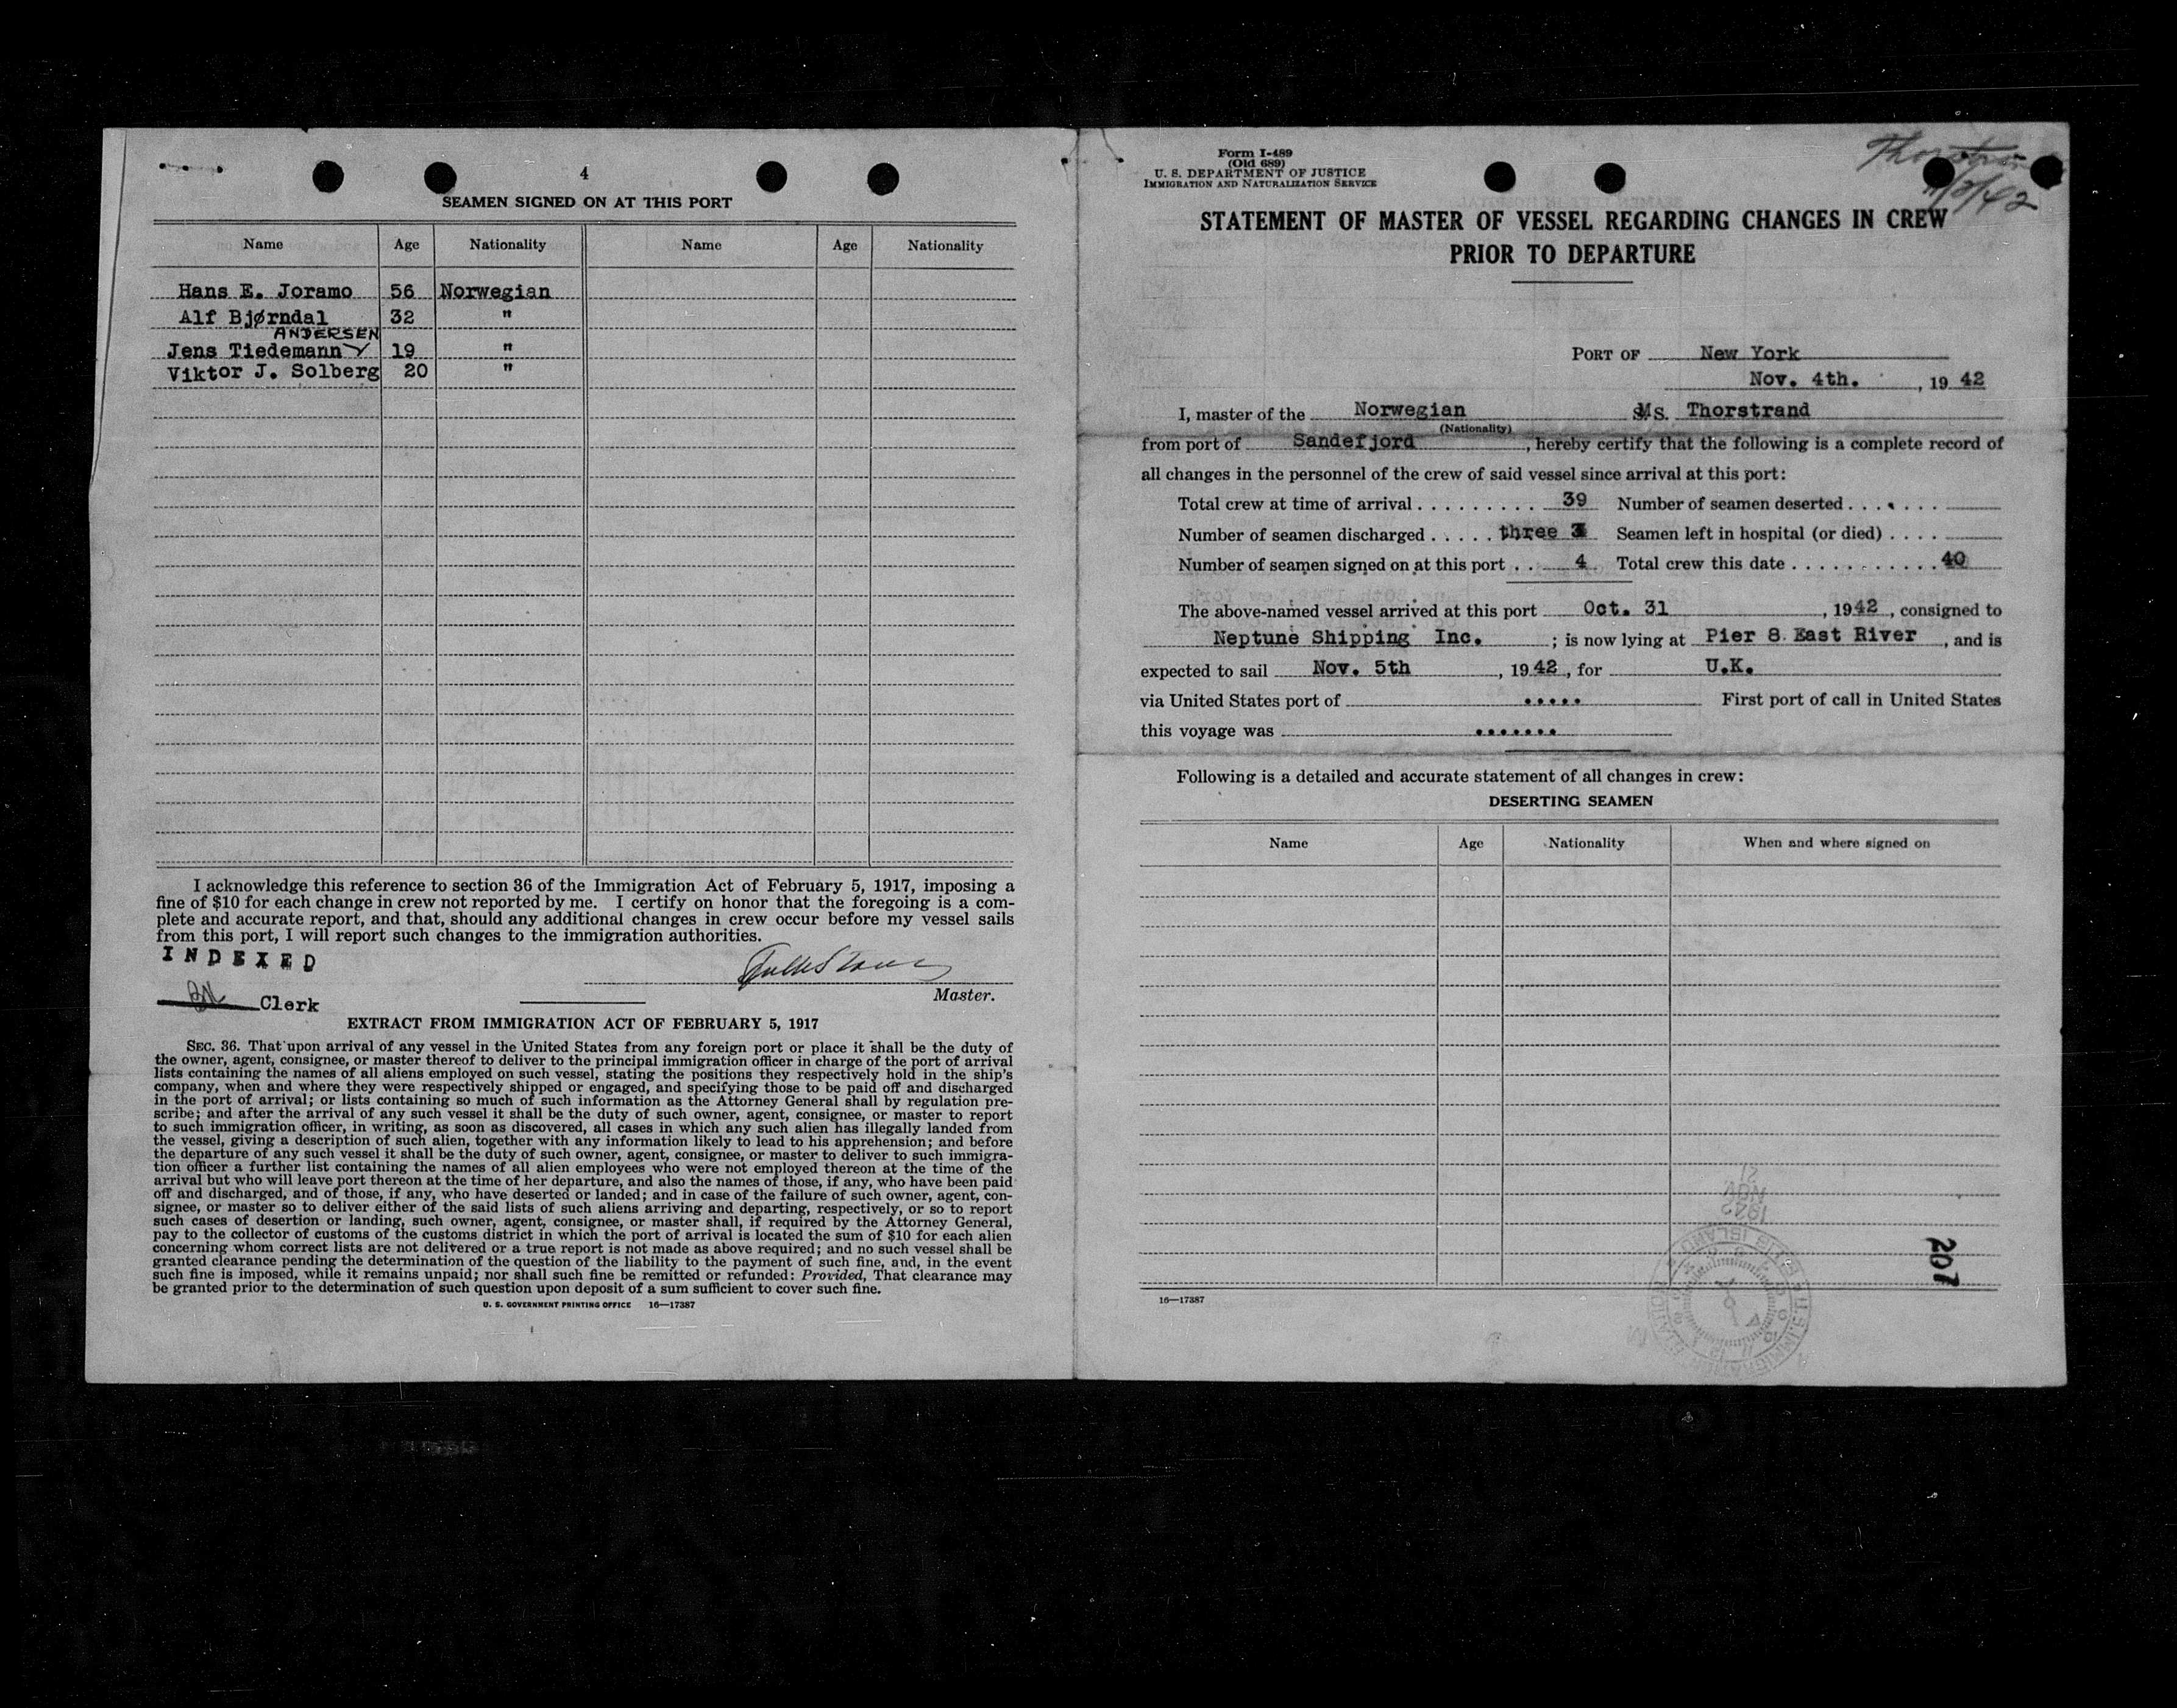 4
SEAMEN SIGNED ON AT THIS PORT
Name Age Nationality Name Age Nationality
Hans E. Joramo 56 Norwegian
Alf Bjørndal 32 "
ANDERSEN
Jens Tiedemann 19 "
Viktor J. Solberg 20 "
I acknowledge this reference to section 36 of the Immigration Act of February 5, 1917, imposing a
fine of $10 for each change in crew not reported by me. I certify on honor that the foregoing is a com-
plete and accurate report, and that, should any additional changes in crew occur before my vessel sails
from this port, I will report such changes to the immigration authorities.
INDEXED
Clerk
Master.
EXTRACT FROM IMMIGRATION ACT OF FEBRUARY 5, 1917
SEC. 36. That upon arrival of any vessel in the United States from any foreign port or place it shall be the duty of
the owner, agent, consignee, or master thereof to deliver to the principal immigration officer in charge of the port of arrival
lists containing the names of all aliens employed on such vessel, stating the positions they respectively hold in the ship's
company, when and where they were respectively shipped or engaged, and specifying those to be paid off and discharged
in the port of arrival; or lists containing so much of such information as the Attorney General shall by regulation pre-
scribe; and after the arrival of any such vessel it shall be the duty of such owner, agent, consignee, or master to report
to such immigration officer, in writing, as soon as discovered, all cases in which any such alien has illegally landed from
the vessel, giving a description of such alien, together with any information likely to lead to his apprehension; and before
the departure of any such vessel it shall be the duty of such owner, agent, consignee, or master to deliver to such immigra-
tion officer a further list containing the names of all alien employees who were not employed thereon at the time of the
arrival but who will leave port thereon at the time of her departure, and also the names of those, if any, who have been paid
off and discharged, and of those, if any, who have deserted or landed; and in case of the failure of such owner, agent, con-
signee, or master so to deliver either of the said lists of such aliens arriving and departing, respectively, or so to report
such cases of desertion or landing, such owner, agent, consignee, or master shall, if required by the Attorney General,
pay to the collector of customs of the customs district in which the port of arrival is located the sum of $10 for each alien
concerning whom correct lists are not delivered or a true report is not made as above required; and no such vessel shall be
granted clearance pending the determination of the question of the liability to the payment of such fine, and, in the event
such fine is imposed, while it remains unpaid; nor shall such fine be remitted or refunded: Provided, That clearance may
be granted prior to the determination of such question upon deposit of a sum sufficient to cover such fine.
U. S. GOVERNMENT PRINTING OFFICE 16—17387
Form I-489
(Old 689)
U. S. DEPARTMENT OF JUSTICE
IMMIGRATION AND NATURALIZATION SERVICE
STATEMENT OF MASTER OF VESSEL REGARDING CHANGES IN CREW
PRIOR TO DEPARTURE
PORT OF New York
Nov. 4th. , 19 42
I, master of the Norwegian MS. Thorstrand
(Nationality)
from port of Sandefjord, hereby certify that the following is a complete record of
all changes in the personnel of the crew of said vessel since arrival at this port:
Total crew at time of arrival . . . . . . . . . 39 Number of seamen deserted . . . . . . .
Number of seamen discharged . . . . . three 3 Seamen left in hospital (or died) . . . .
Number of seamen signed on at this port . . 4 Total crew this date . . . . . . . . . . . 40
The above-named vessel arrived at this port Oct. 31 , 1942 , consigned to
Neptune Shipping Inc. ; is now lying at Pier 8 East River , and is
expected to sail Nov. 5th , 19 42 , for U.K.
via United States port of ..... First port of call in United States
this voyage was .......
Following is a detailed and accurate statement of all changes in crew:
DESERTING SEAMEN
Name Age Nationality When and where signed on
207
16—17387